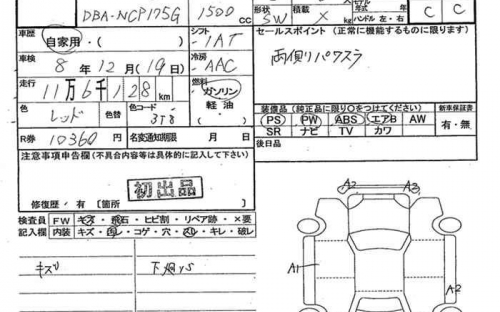 DBA-NCP175G 1500 cc
形状 SW 積載 X K ハンドル 左・右
C C
車歴 自家用・( ) シフト IAT
セールスポイント (正常に機能するものに限ります)
車検 8年12月(19)日 冷房 AAC
両側リパワスラ
走行 11万6千128km 燃料 ガソリン 軽油 ( )
色 レッド 色コード 3T8
装備品(純正品に限り○をつけてください) 新車保証書
PS PW ABS エアB AW 有・無
SR ナビ TV カワ
R券 10360円 名変通知期限 月 日
後日品
注意事項申告欄(不具合内容等は具体的に記入して下さい)
初出品
修復歴・有( )
A2 A3
検査員 FW キズ・飛石・ヒビ割・リペア跡・×要
記入欄 内装 キズ・凹・コゲ・穴・汚・キレ・破レ
キズ 下廻りS
A1 A2